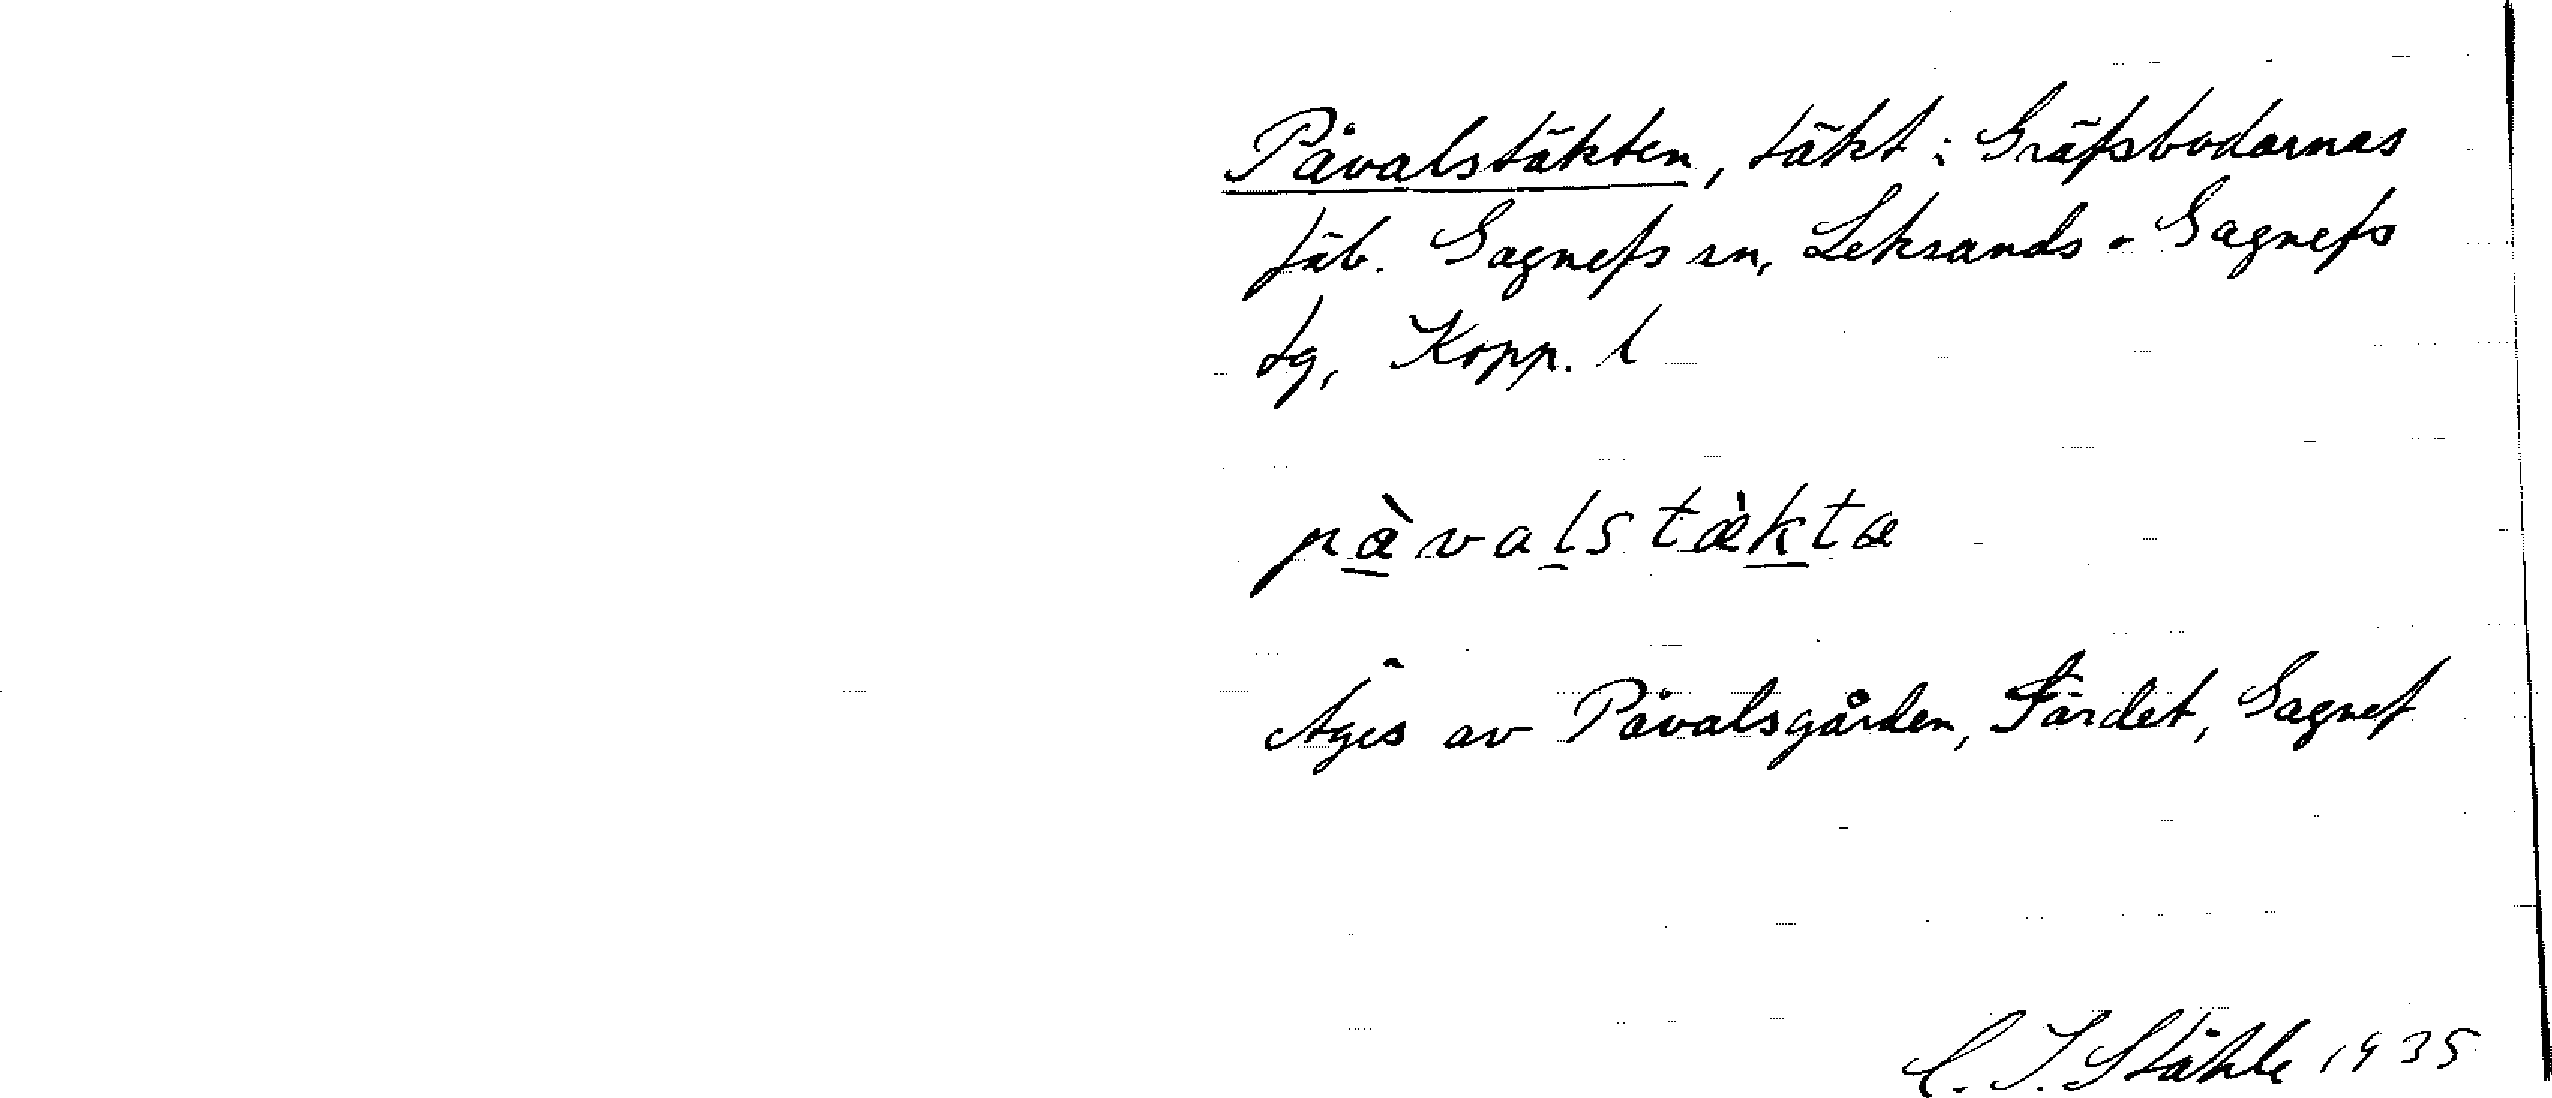 Påvalstäkten, täkt i Gräfsbodarnas
fäb. Gagnefs sn, Leksands - Gagnefs
tg, Kopp. l
pàvalstæ̀kta
Äges av Påvalsgården, Färdet, Gagnef
C. I. Ståhle 1935